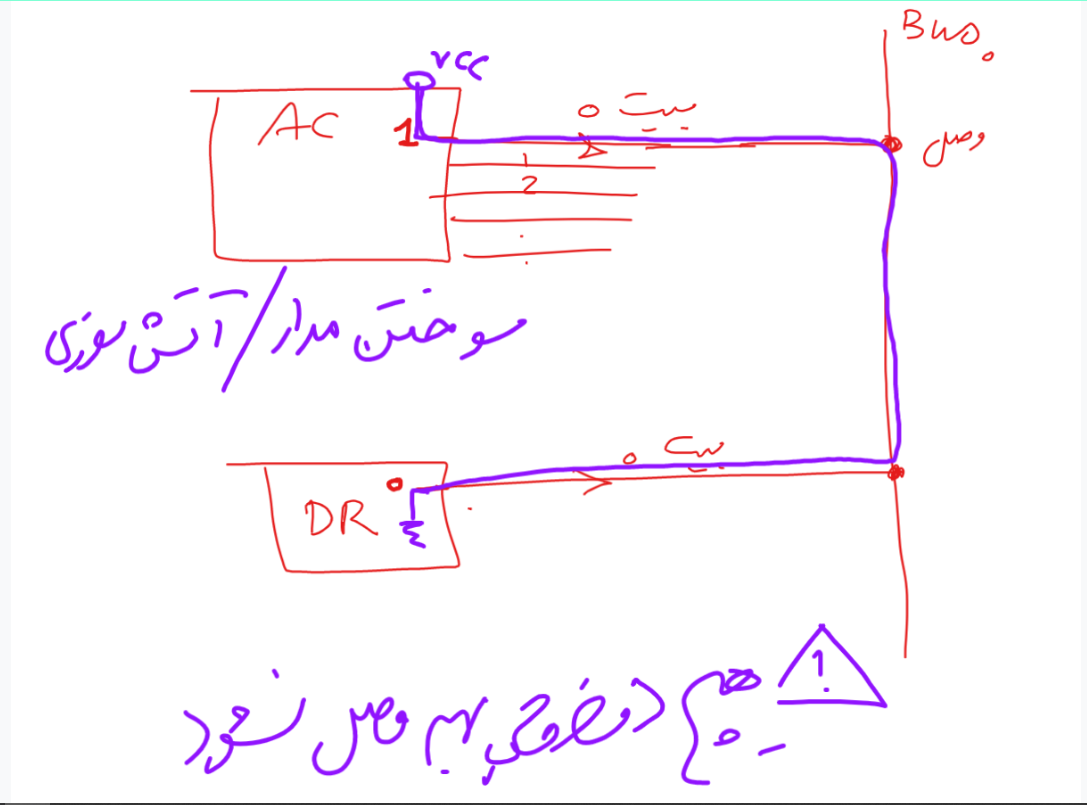 Bus₀
VCC
AC
1
بیت 0
وصل
1
2
سوختن مدار / آتش سوزی
بیت 0
0
DR
!
هیچ دو خروجی بهم وصل نشود